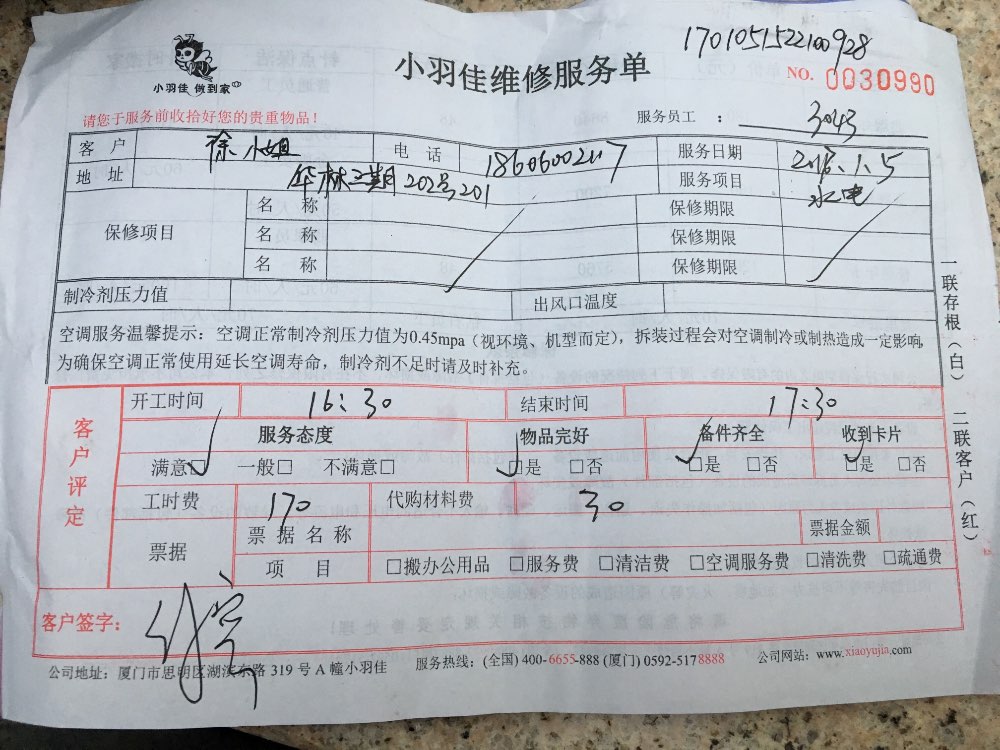 1701051522100928
小羽佳 做到家
小羽佳维修服务单
NO. 0030990
请您于服务前收拾好您的贵重物品！
服务员工 ： 3043
客 户 徐小姐 电 话 服务日期 1.5
地 址 华林三期202号201 服务项目 水电
保修项目 名 称 保修期限
名 称 保修期限
名 称 保修期限
制冷剂压力值 出风口温度
空调服务温馨提示：空调正常制冷剂压力值为0.45mpa（视环境、机型而定），拆装过程会对空调制冷或制热造成一定影响，
为确保空调正常使用延长空调寿命，制冷剂不足时请及时补充。
一联存根（白） 二联客户（红）
客户评定
开工时间 16：30 结束时间 17：30
服务态度 物品完好 备件齐全 收到卡片
满意□ 一般□ 不满意□ □是 □否 □是 □否 □是 □否
工时费 170 代购材料费 30
票据 票据名称 票据金额
项 目 □搬办公用品 □服务费 □清洁费 □空调服务费 □清洗费 □疏通费
客户签字：
公司地址：厦门市思明区湖滨东路 319 号 A 幢小羽佳 服务热线：(全国) 400-6655-888 (厦门) 0592-5178888 公司网站：www.xiaoyujia.com